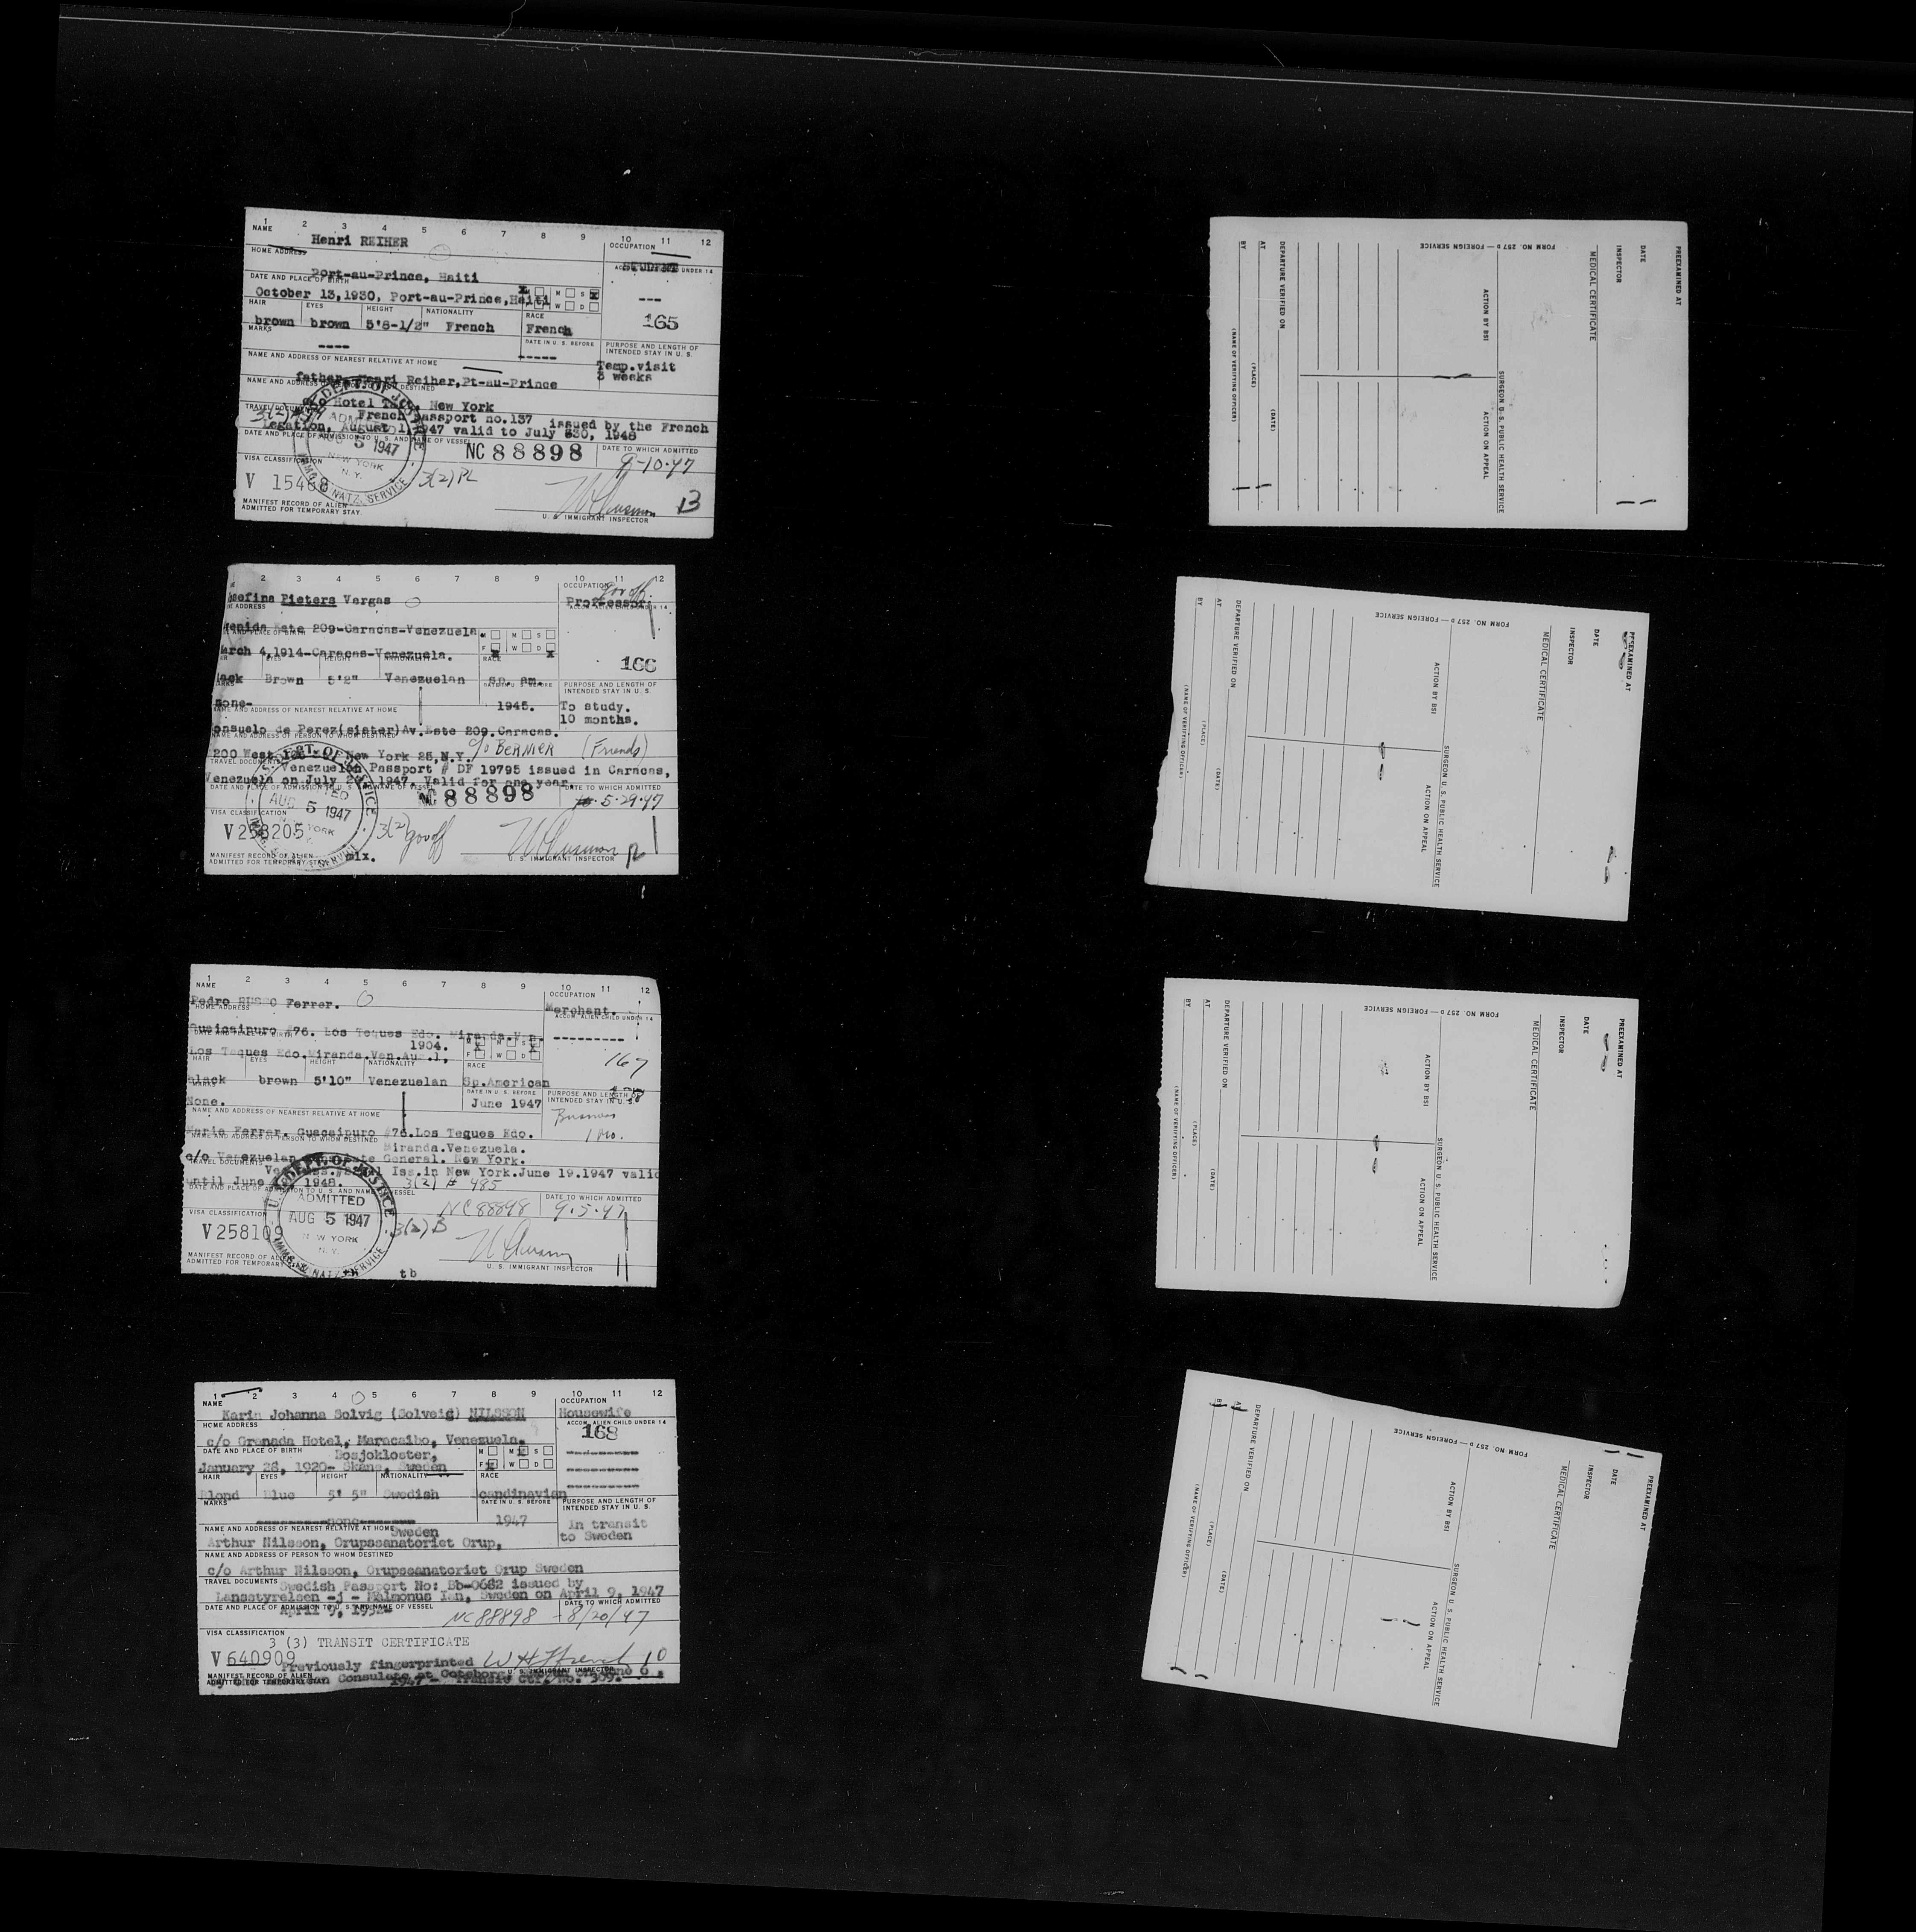 1 2 3 4 5 6 7 8 9 10 11 12
NAME Henri REIHER OCCUPATION
HOME ADDRESS STUDENT UNDER 14
Port-au-Prince, Haiti
DATE AND PLACE OF BIRTH
October 13,1930, Port-au-Prince,Haiti M S X W D ---
HAIR EYES HEIGHT NATIONALITY RACE
brown brown 5'8-1/2" French French 165
MARKS ---- DATE IN U. S. BEFORE ----- PURPOSE AND LENGTH OF INTENDED STAY IN U. S.
NAME AND ADDRESS OF NEAREST RELATIVE AT HOME Temp.visit
3 weeks
father, Henri Reiher,Pt-au-Prince
NAME AND ADDRESS DESTINED
c/o Hotel Taft, New York
TRAVEL DOCUMENTS French passport no.137 issued by the French
Legation, August 1,1947 valid to July 30, 1948
DATE AND PLACE OF ADMISSION TO U. S. AND NAME OF VESSEL NC 88898 DATE TO WHICH ADMITTED
9-10-47
AUG 5 1947
NEW YORK
N. Y.
VISA CLASSIFICATION
V 15468 3(2) PL
MANIFEST RECORD OF ALIEN
ADMITTED FOR TEMPORARY STAY. U. S. IMMIGRANT INSPECTOR 13
2 3 4 5 6 7 8 9 10 11 12
OCCUPATION gov off
Pieters Vargas Professor
ADDRESS ACCOM. ALIEN CHILD UNDER 14
209-Caracas-Venezuela. M M S
AND PLACE OF BIRTH
4,1914-Caracas-Venezuela. F W D
EYES HEIGHT NATIONALITY RACE 166
Brown 5'2" Venezuelan sp. am.
DATE IN U. S. BEFORE PURPOSE AND LENGTH OF INTENDED STAY IN U. S.
none- 1945. To study.
NAME AND ADDRESS OF NEAREST RELATIVE AT HOME 10 months.
de Perez(sister)Av. Este 209.Caracas.
NAME AND ADDRESS OF PERSON TO WHOM DESTINED
200 West New York 25,N.Y. c/o BERNIER (Friends)
TRAVEL DOCUMENTS Venezuelan Passport # DF 19795 issued in Caracas,
Venezuela on July 1947. Valid for one year.
DATE AND PLACE OF ADMISSION TO U. S. AND NAME OF VESSEL NC 88898 DATE TO WHICH ADMITTED
5-29-47
AUG 5 1947
VISA CLASSIFICATION
V 258205 3(2) gov off
MANIFEST RECORD OF ALIEN mix.
ADMITTED FOR TEMPORARY STAY U. S. IMMIGRANT INSPECTOR
1 2 3 4 5 6 7 8 9 10 11 12
NAME OCCUPATION
Pedro Ferrer. Merchant.
HOME ADDRESS ACCOM. ALIEN CHILD UNDER 14
#76. Los Teques Edo. Miranda.Vn. ---------
1904. M M S
Los Teques Edo.Miranda.Ven. F W D
HAIR EYES HEIGHT NATIONALITY RACE 167
black brown 5'10" Venezuelan Sp.American
DATE IN U. S. BEFORE PURPOSE AND LENGTH OF INTENDED STAY IN U. S.
None. June 1947 Business
NAME AND ADDRESS OF NEAREST RELATIVE AT HOME 1 mo.
Maria Ferrer. Guacaipuro #76.Los Teques Edo.
NAME AND ADDRESS OF PERSON TO WHOM DESTINED Miranda.Venezuela.
c/o Venezuelan General. New York.
TRAVEL DOCUMENTS Iss.in New York.June 19.1947 valid
until June 1948. 3(2) # 485
DATE AND PLACE OF ADMISSION TO U. S. AND NAME OF VESSEL NC 88898 DATE TO WHICH ADMITTED
9-5-47
U.S. DEPT. OF JUSTICE
ADMITTED
AUG 5 1947
NEW YORK
N.Y.
VISA CLASSIFICATION
V 258109 3(2) B
MANIFEST RECORD OF ALIEN
ADMITTED FOR TEMPORARY tb U. S. IMMIGRANT INSPECTOR 11
1 2 3 4 5 6 7 8 9 10 11 12
NAME OCCUPATION
Karin Johanna Solvig (Solveig) NILSSON Housewife
HOME ADDRESS ACCOM. ALIEN CHILD UNDER 14
c/o Granada Hotel, Maracaibo, Venezuela. 168
DATE AND PLACE OF BIRTH Bosjokloster, M M S
January 28, 1920- Skane, Sweden F W D
HAIR EYES HEIGHT NATIONALITY RACE
Blond Blue 5' 5" Swedish Scandinavian
MARKS DATE IN U. S. BEFORE PURPOSE AND LENGTH OF INTENDED STAY IN U. S.
none 1947 In transit
NAME AND ADDRESS OF NEAREST RELATIVE AT HOME Sweden to Sweden
Arthur Nilsson, Orupssanatoriet Orup,
NAME AND ADDRESS OF PERSON TO WHOM DESTINED
c/o Arthur Nilsson, Orupssanatoriet Orup Sweden
TRAVEL DOCUMENTS Swedish Passport No: Bb-0682 issued by
Lansstyrelsen -j - Malmonus lan, Sweden on April 9, 1947
DATE AND PLACE OF ADMISSION TO U. S. AND NAME OF VESSEL DATE TO WHICH ADMITTED
April 9, NC 88898 8/20/47
VISA CLASSIFICATION
3 (3) TRANSIT CERTIFICATE
V 640909 Previously fingerprinted 10
MANIFEST RECORD OF ALIEN U. S. IMMIGRANT INSPECTOR
ADMITTED FOR TEMPORARY STAY Consulate at Goteborg, June 6,
1947 - Transit Ctf. No. 309.
PREEXAMINED AT
DATE
INSPECTOR
MEDICAL CERTIFICATE
SURGEON U. S. PUBLIC HEALTH SERVICE
ACTION BY BSI ACTION ON APPEAL
FORM NO. 257 D — FOREIGN SERVICE
DEPARTURE VERIFIED ON (DATE)
AT (PLACE)
BY (NAME OF VERIFYING OFFICER)
PREEXAMINED AT
DATE
INSPECTOR
MEDICAL CERTIFICATE
SURGEON U. S. PUBLIC HEALTH SERVICE
ACTION BY BSI ACTION ON APPEAL
FORM NO. 257 D — FOREIGN SERVICE
DEPARTURE VERIFIED ON (DATE)
AT (PLACE)
BY (NAME OF VERIFYING OFFICER)
PREEXAMINED AT
DATE
INSPECTOR
MEDICAL CERTIFICATE
SURGEON U. S. PUBLIC HEALTH SERVICE
ACTION BY BSI ACTION ON APPEAL
FORM NO. 257 D — FOREIGN SERVICE
DEPARTURE VERIFIED ON (DATE)
AT (PLACE)
BY (NAME OF VERIFYING OFFICER)
PREEXAMINED AT
DATE
INSPECTOR
MEDICAL CERTIFICATE
SURGEON U. S. PUBLIC HEALTH SERVICE
ACTION BY BSI ACTION ON APPEAL
FORM NO. 257 D — FOREIGN SERVICE
DEPARTURE VERIFIED ON (DATE)
AT (PLACE)
BY (NAME OF VERIFYING OFFICER)